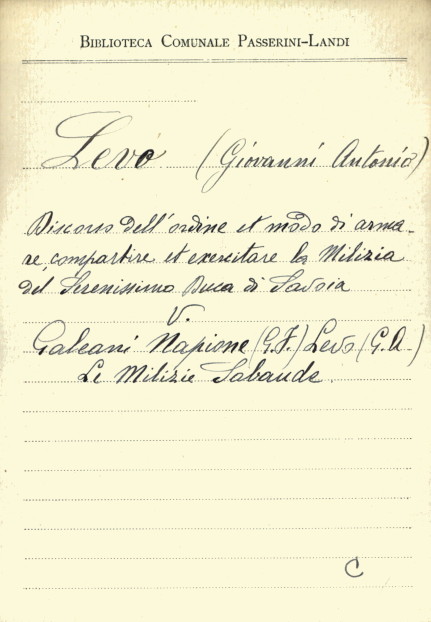 BIBLIOTECA COMUNALE PASSERINI-LANDI
Levo (Giovanni Antonio)
Discorso dell'ordine et modo di arma-
re, compartire et exercitare la Milizia
del Serenissimo Duca di Savoia
V.
Galeani Napione (G.F.) Levo (G.A.)
Le Milizie Sabaude.
C